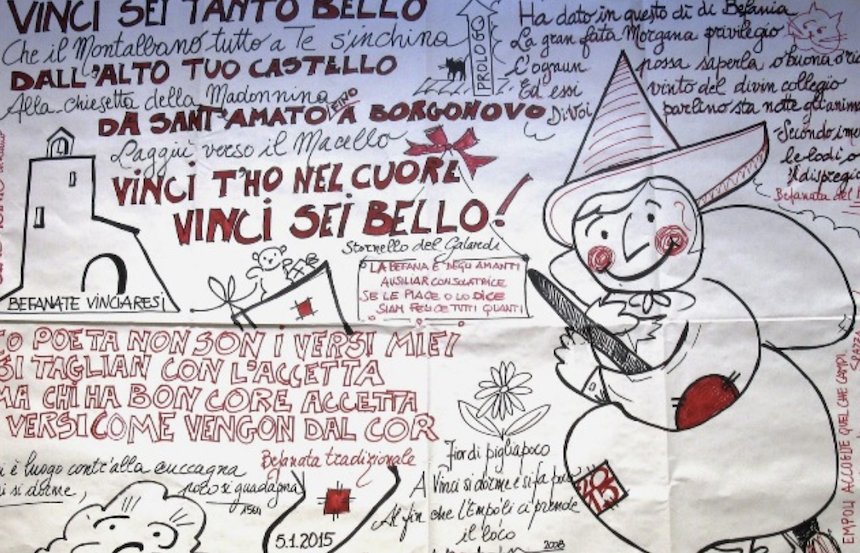 VINCI SEI TANTO BELLO
Che il Montalbano tutto a Te s'inchina
DALL'ALTO TUO CASTELLO
Alla chiesetta della Madonnina
FINO
DA SANT'AMATO A BORGONOVO
Laggiù verso il Macello
VINCI T'HO NEL CUORE
VINCI SEI BELLO!
Stornello del Galardi
PROLOGO
Ha dato in questo dì di Befania
La gran fata Morgana privilegio
C'ognun possa saperla o buona o ria
Ed essi vinto del divin collegio
Di Voi parlino sta notte gl'anim
Secondo i me
le lodi o
il dispregio
Befanata del
BEFANATE VINCIARESI
LA BEFANA È DEGLI AMANTI
AUSILIAR CONSOLATRICE
SE LE PIACE O LO DICE
SIAM FELICE TUTTI QUANTI
CO POETA NON SON I VERSI MIEI
SI TAGLIAN CON L'ACCETTA
MA CHI HA BON CORE ACCETTA
VERSI COME VENGON DAL COR
Befanata tradizionale
i è luogo cont'alla cuccagna
i si dorme, poco si guadagna
1541
5.1.2015
Fior di pigliapoco
A Vinci si dorme e si fa poco
Al fin che l'Empoli ci prende
il loco
2008
2015
EMPOLI ACCOGLIE QUEL CHE CAMPA